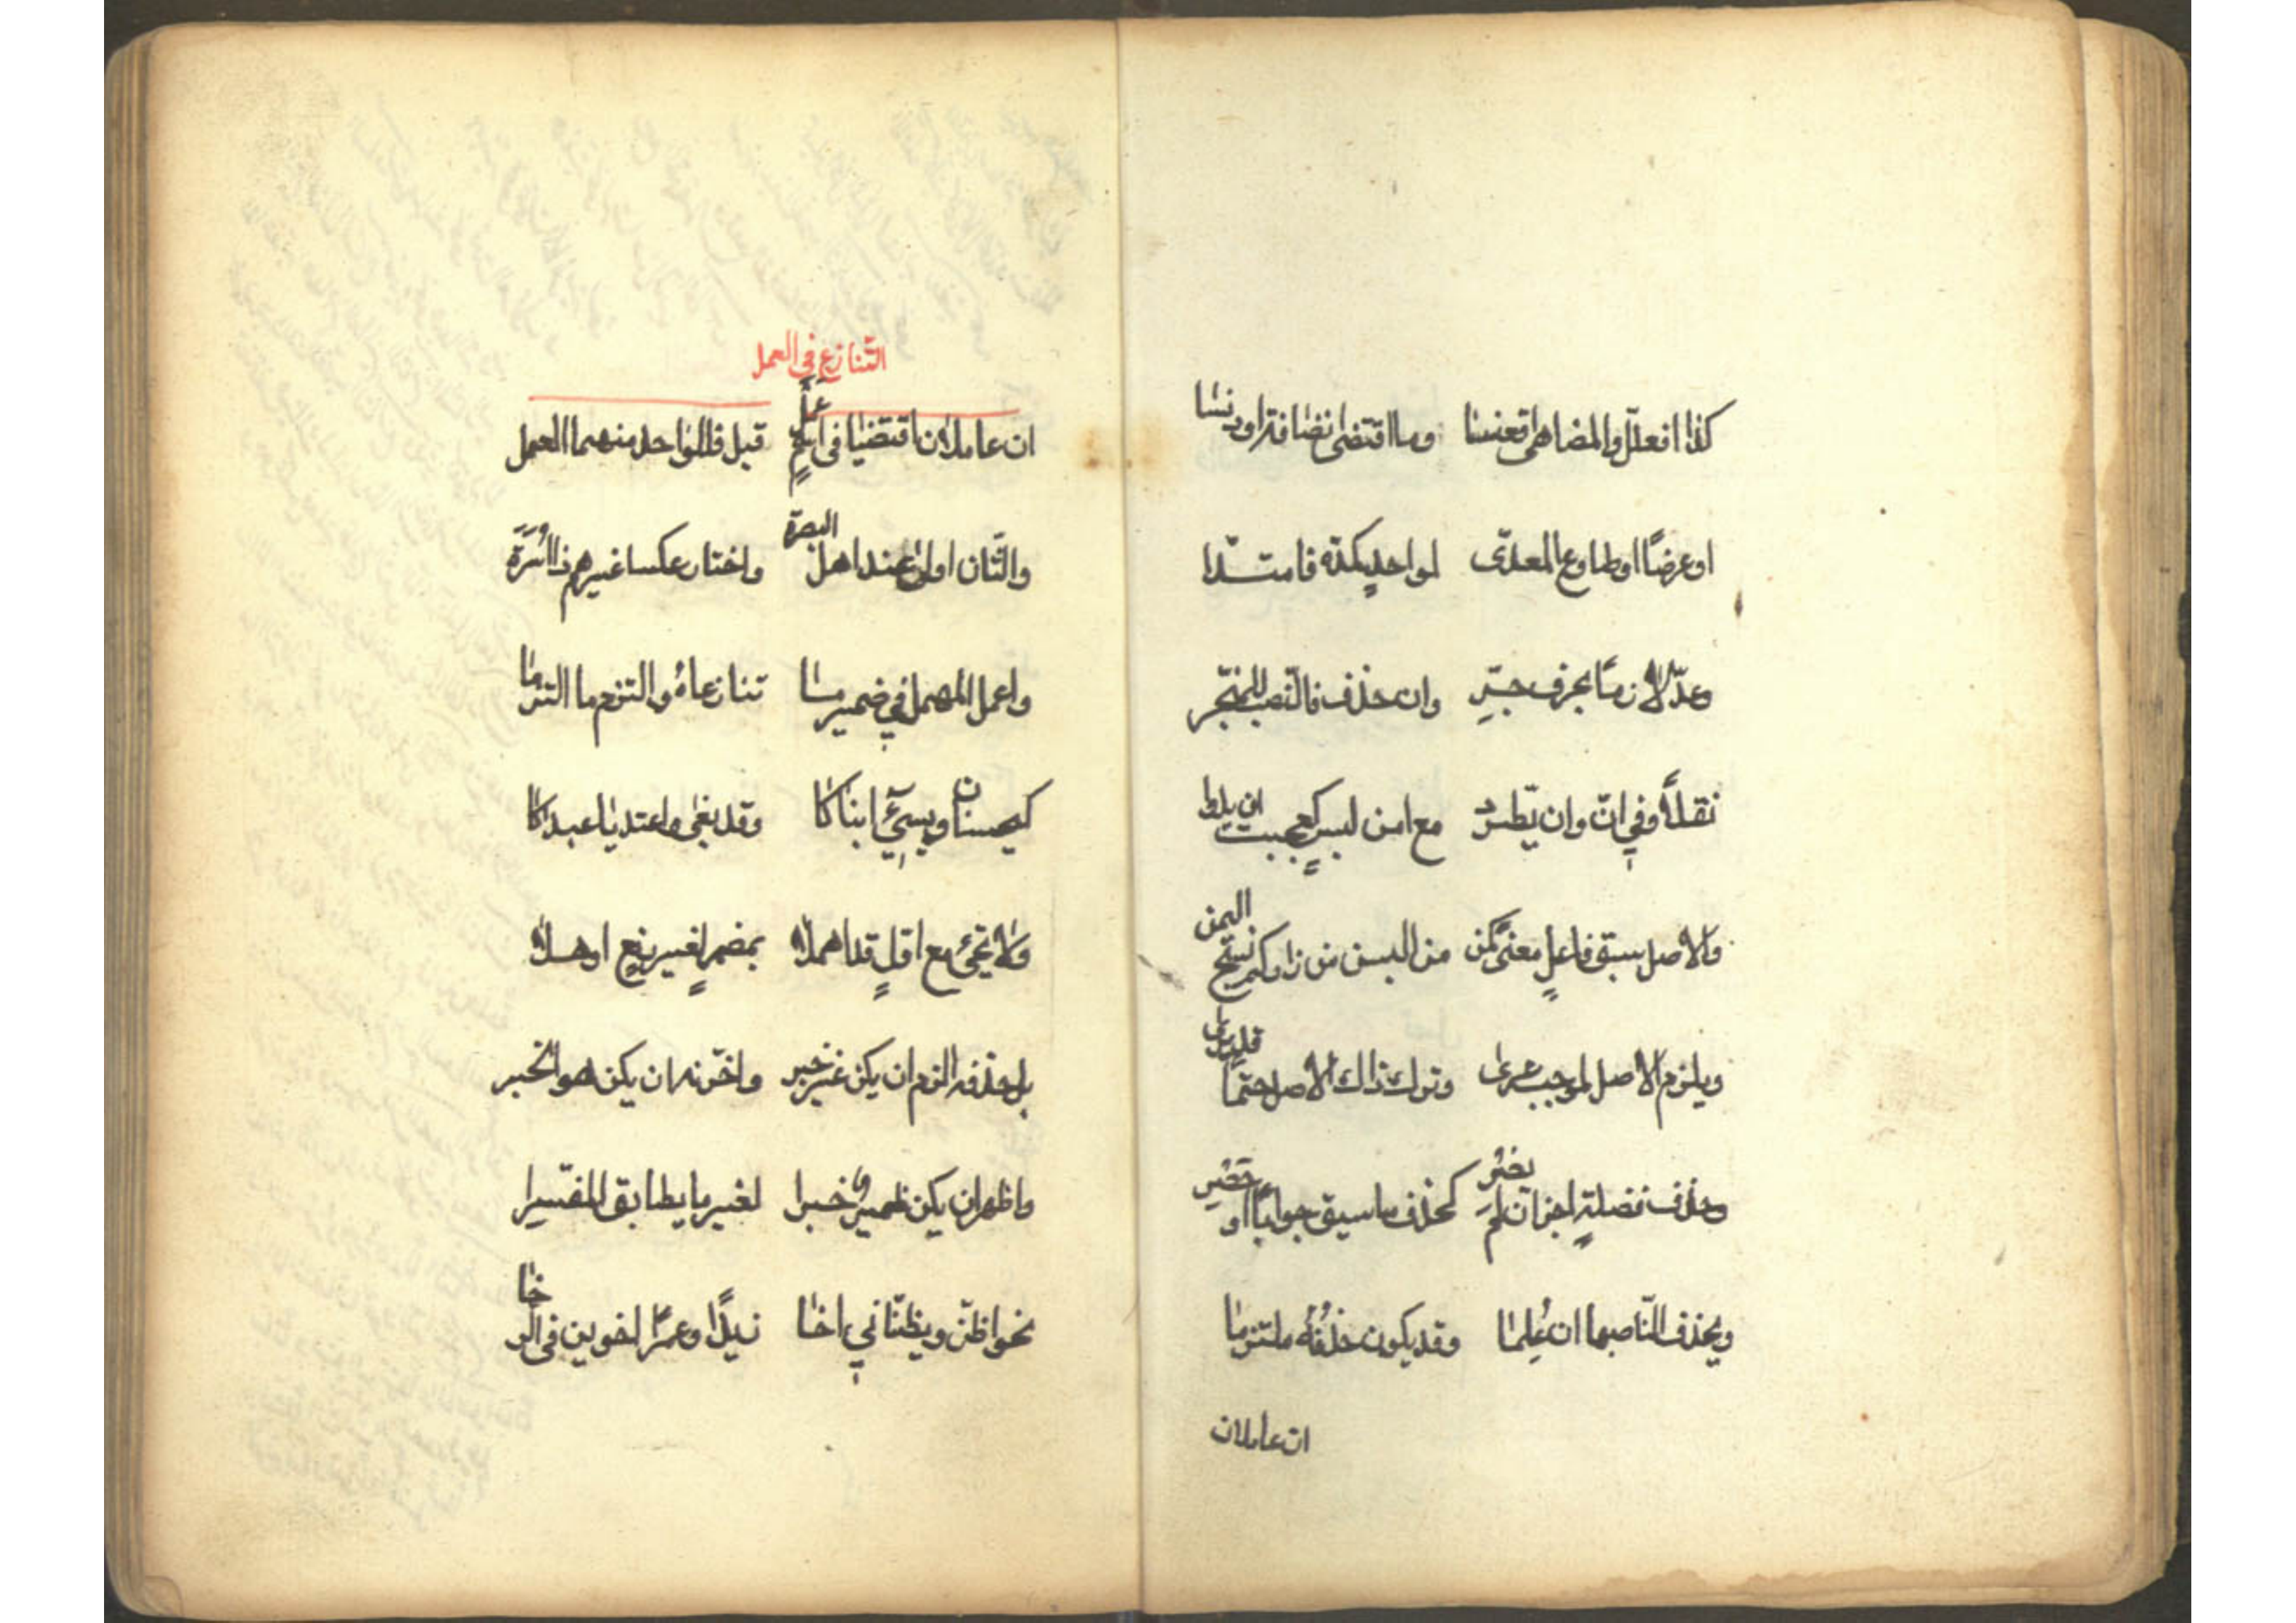 كذا افعلل والمضاهى اقعنسسا وما اقتضى نظافة او دنسا
او عرضًا او طاوع المعدّى لواحدٍ كمدّه فامتدّا
وعدّ لازمًا بحرف جرّ وان حذف فالنّصب للمنجّر
نقلاً وفي انّ وان يطّرد مع امن لبسٍ كعجبت ان يدوا
والاصل سبق فاعلٍ معنًى كمن من البسن من زاركم نسج اليمن
ويلزم الاصل لموجب عرى وترك ذاك الاصل حتمًا قد يرى
وحذف فضلةٍ اجز ان لم يضر كحذف ما سيق جوابًا او حصر
ويحذف النّاصبها ان عُلِما وقد يكون حذفُهُ ملتزما
ان عاملان
التّنازع في العمل
ان عاملان اقتضيا في اسمٍ عمل قبل فللواحد منهما العمل
والثّان اولى عند اهل البصرة واختار عكسا غيرهم ذا اُسْرَة
واعمل المهمل في ضمير ما تنازعاهُ والتزم ما التزما
كيحسنان ويسيٓئ ابناكا وقد بغى واعتديا عبداكا
ولا تجئ مع اوّلٍ قد اهملا بمضمرٍ لغير رفعٍ اوهلا
بل حذفه الزم ان يكن غير خبر واخّرنه ان يكن هو الخبر
واظهر ان يكن ضمير خبرا لغير ما يطابق المفسّرا
نحو اظنّ ويظنّاني اخا زيدًا وعمرًا اخوين في الرّخا